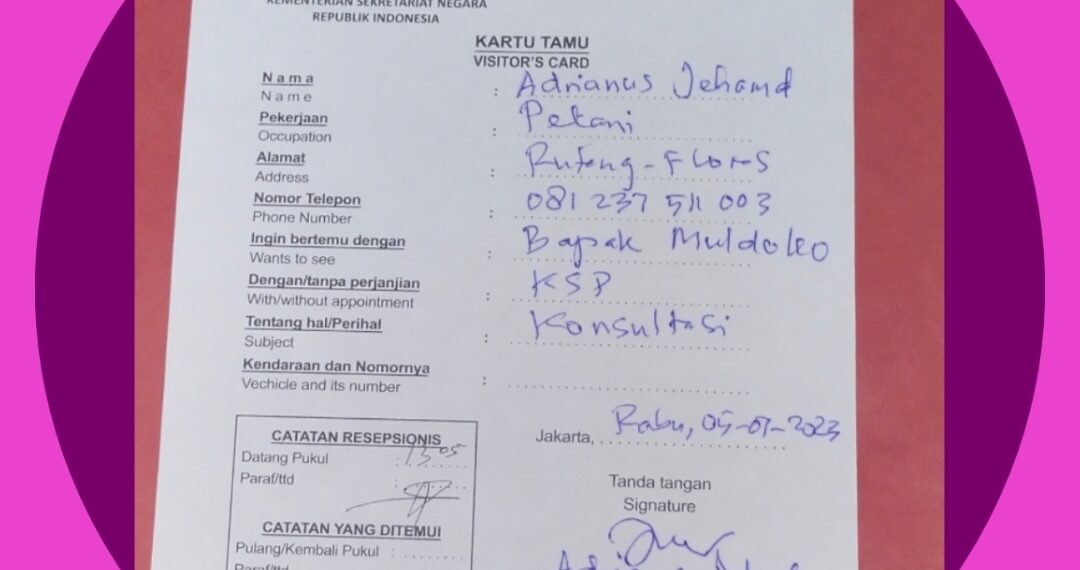 KEMENTERIAN SEKRETARIAT NEGARA
REPUBLIK INDONESIA
KARTU TAMU
VISITOR'S CARD
Nama : Adrianus Jehamd
Name
Pekerjaan : Petani
Occupation
Alamat : Ruteng - Flores
Address
Nomor Telepon : 081 237 511 003
Phone Number
Ingin bertemu dengan : Bapak Muldoko
Wants to see
Dengan/tanpa perjanjian : KSP
With/without appointment
Tentang hal/Perihal : Konsultasi
Subject
Kendaraan dan Nomornya :
Vechicle and its number
Jakarta, Rabu, 05-07-2023
CATATAN RESEPSIONIS
Datang Pukul : 13.05
Paraf/ttd :
Tanda tangan
Signature
CATATAN YANG DITEMUI
Pulang/Kembali Pukul :
Paraf/ttd